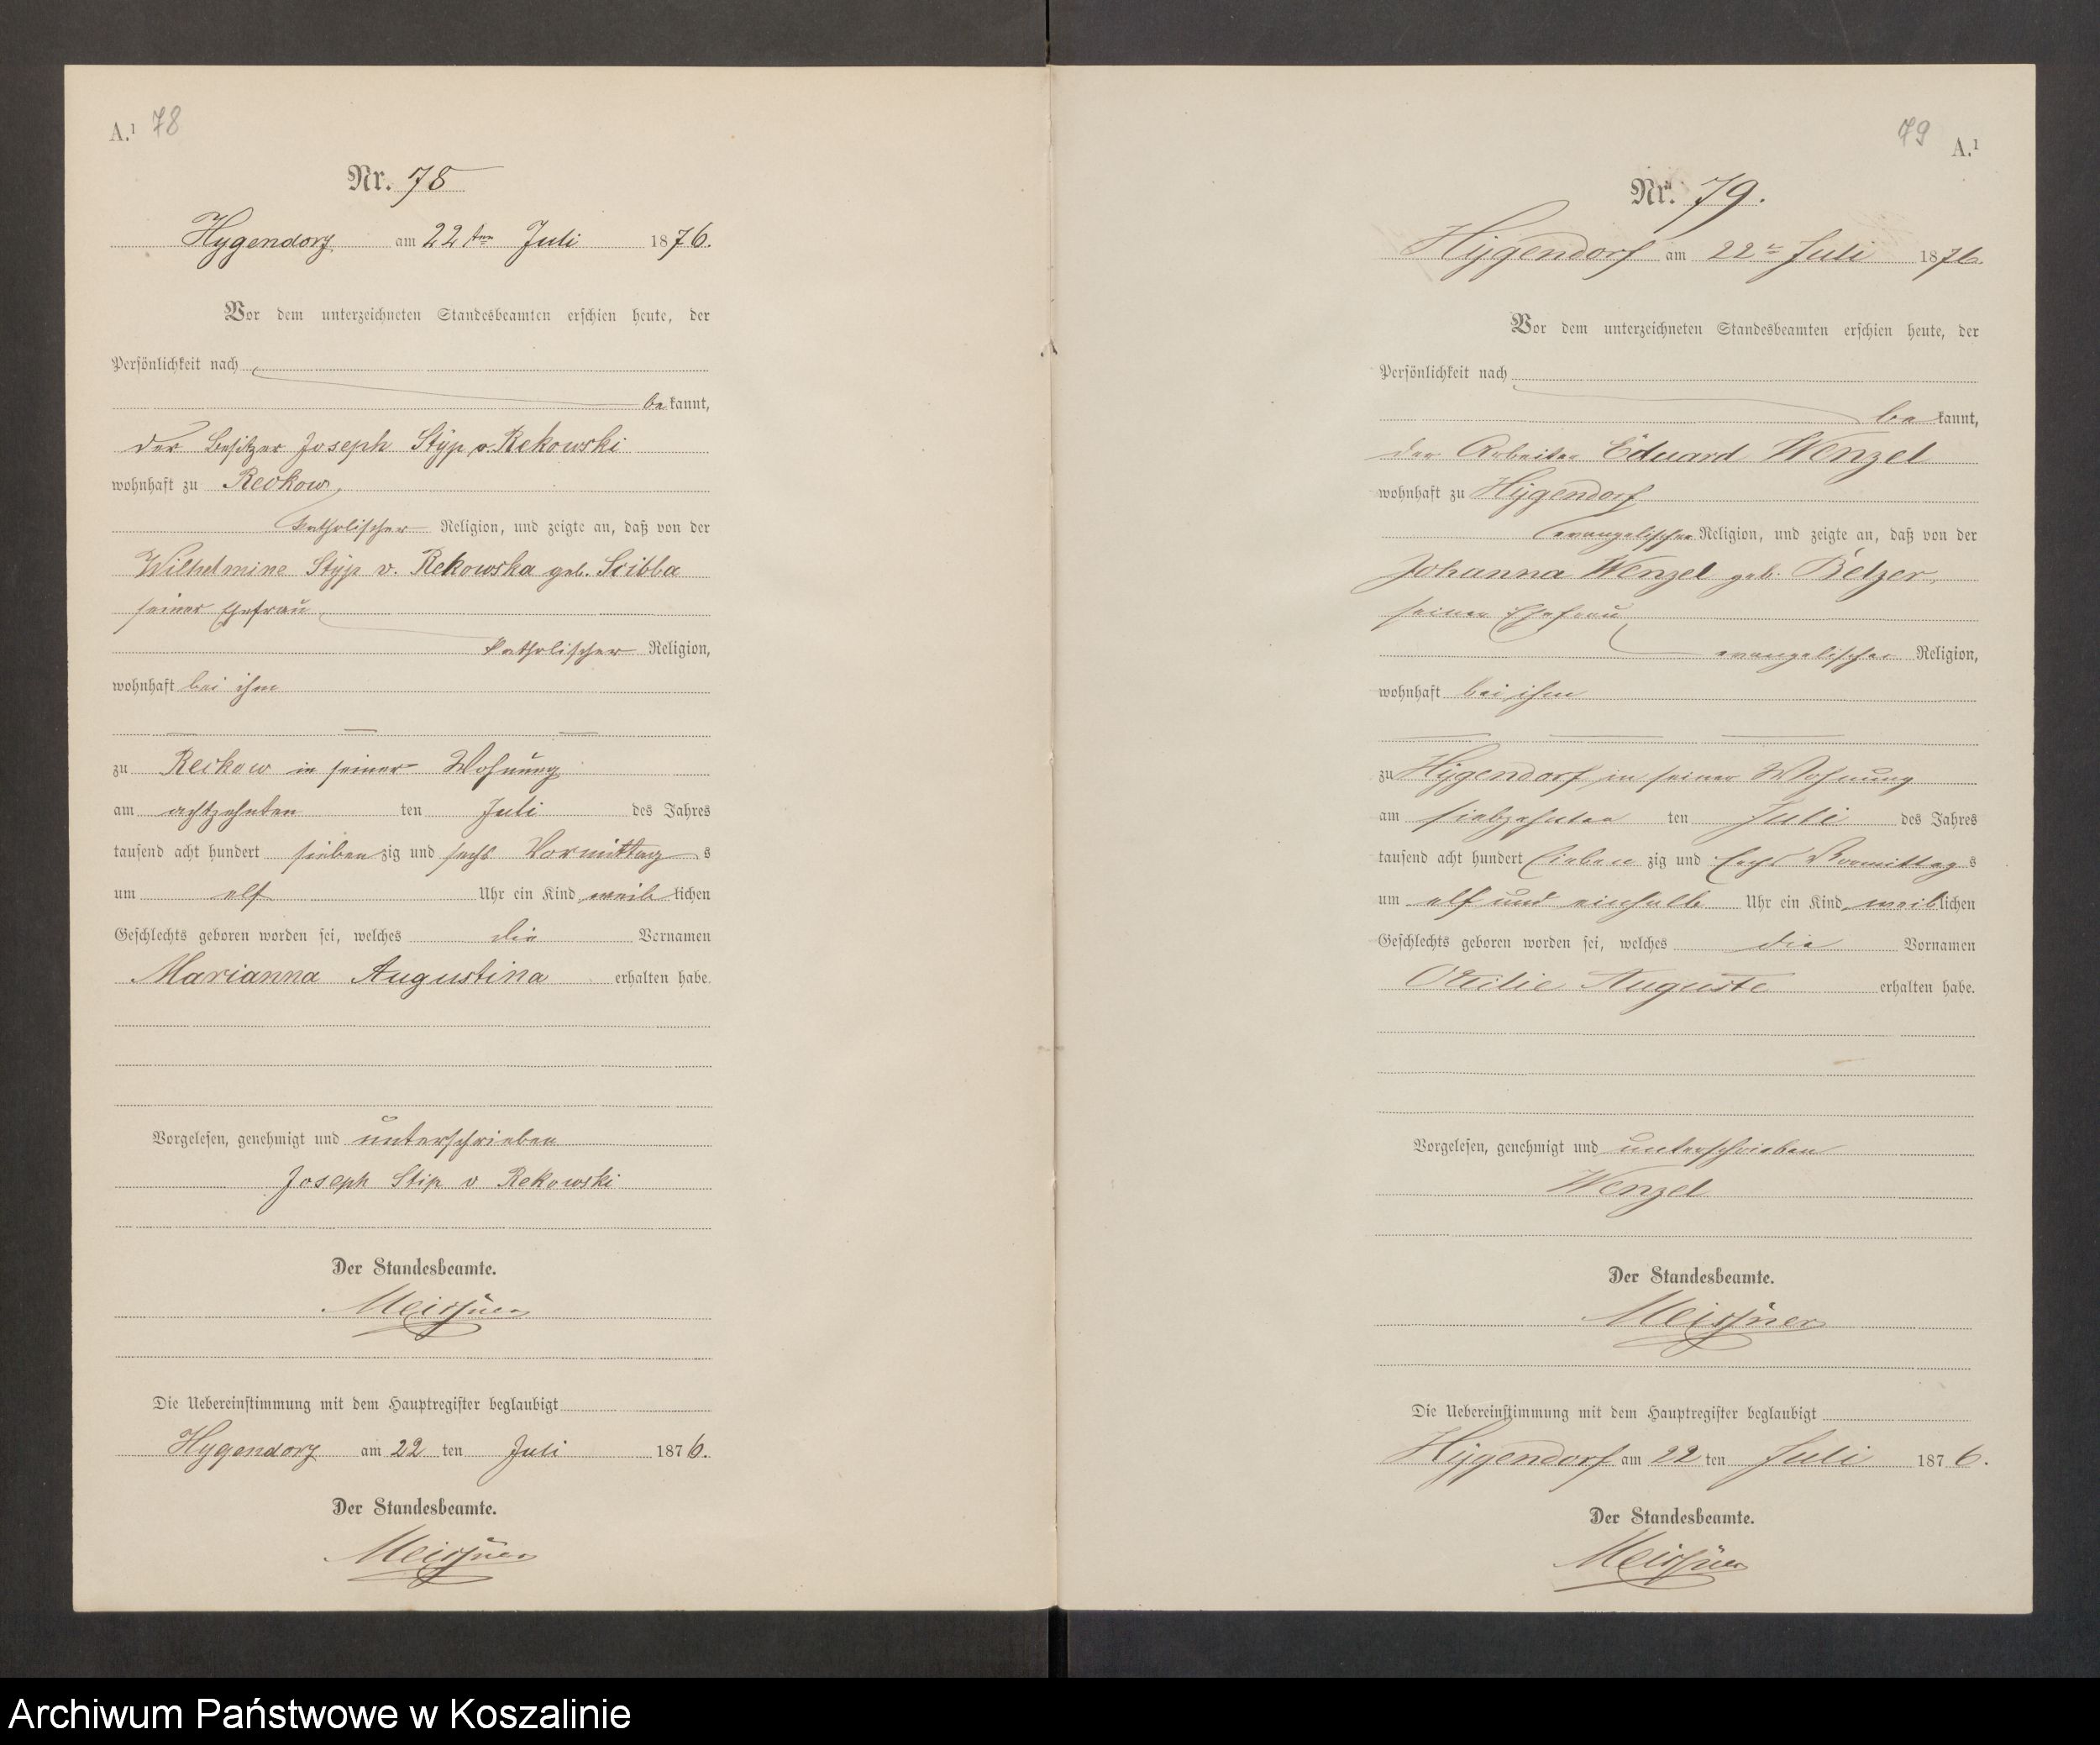 A.¹ 78
Nr. 78
Hygendorf am 22 ten Juli 1876.
Vor dem unterzeichneten Standesbeamten erschien heute, der
Persönlichkeit nach
bekannt,
der Besitzer Joseph Styp v. Rekowski
wohnhaft zu Reckow,
katholischer Religion, und zeigte an, daß von der
Wilhelmine Styp v. Rekowska geb. Scibba
seiner Ehefrau
katholischer Religion,
wohnhaft bei ihm
zu Reckow in seiner Wohnung
am achtzehnten ten Juli des Jahres
tausend acht hundert siebenzig und sechs Vormittags
um elf Uhr ein Kind weiblichen
Geschlechts geboren worden sei, welches die Vornamen
Marianna Augustina erhalten habe.
Vorgelesen, genehmigt und unterschrieben
Joseph Stip v Rekowski
Der Standesbeamte.
Meissner
Die Uebereinstimmung mit dem Hauptregister beglaubigt
Hygendorf am 22 ten Juli 1876.
Der Standesbeamte.
Meissner
79 A.¹
Nr. 79.
Hygendorf am 22 Juli 1876.
Vor dem unterzeichneten Standesbeamten erschien heute, der
Persönlichkeit nach
bekannt,
der Arbeiter Eduard Wenzel
wohnhaft zu Hygendorf
evangelischer Religion, und zeigte an, daß von der
Johanna Wenzel geb. Belzer,
seiner Ehefrau
evangelischer Religion,
wohnhaft bei ihm
zu Hygendorf in seiner Wohnung
am siebzehnten ten Juli des Jahres
tausend acht hundert siebenzig und sechs Vormittags
um elf und einhalb Uhr ein Kind weiblichen
Geschlechts geboren worden sei, welches die Vornamen
Ottilie Auguste erhalten habe.
Vorgelesen, genehmigt und unterschrieben
Wenzel
Der Standesbeamte.
Meissner
Die Uebereinstimmung mit dem Hauptregister beglaubigt
Hygendorf am 22 ten Juli 1876.
Der Standesbeamte.
Meissner
Archiwum Państwowe w Koszalinie